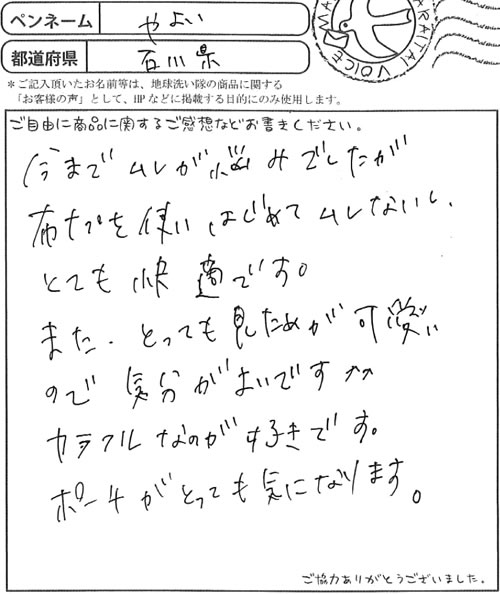 ペンネーム やよい
都道府県 石川県
＊ご記入頂いたお名前等は、地球洗い隊の商品に関する
「お客様の声」として、HPなどに掲載する目的にのみ使用します。
ARAITAI VOICE
ご自由に商品に関するご感想などお書きください。
今までムレが悩みでしたが
布ナプを使いはじめてムレないし、
とても快適です。
また、とっても見ためが可愛い
ので気分がよいです^^
カラフルなのが好きです。
ポーチがとっても気になります。
ご協力ありがとうございました。